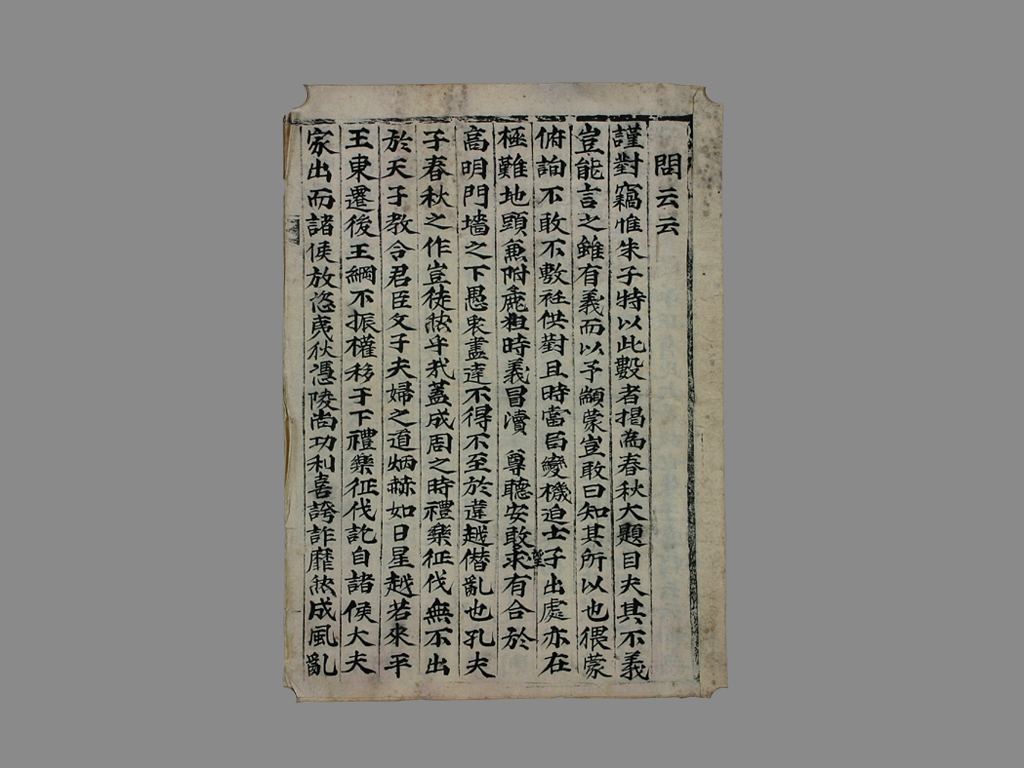 問云云
謹對竊惟朱子特以此數者揭為春秋大題目夫其不義
豈能言之雖有義而以予顓蒙豈敢曰知其所以也猥蒙
俯詢不敢不敷衽供對且時當百變機迫士子出處亦在
極難地頭兼附麁粗時義冒瀆　尊聽安敢望求有合於
高明門墻之下愚衷盡達不得不至於違越僭亂也孔夫
子春秋之作豈徒然乎哉蓋成周之時禮樂征伐無不出
於天子教令君臣父子夫婦之道炳赫如日星越若來平
王東遷後王綱不振權移于下禮樂征伐訖自諸侯大夫
家出而諸侯放恣夷狄憑陵尚功利喜誇詐靡然成風亂